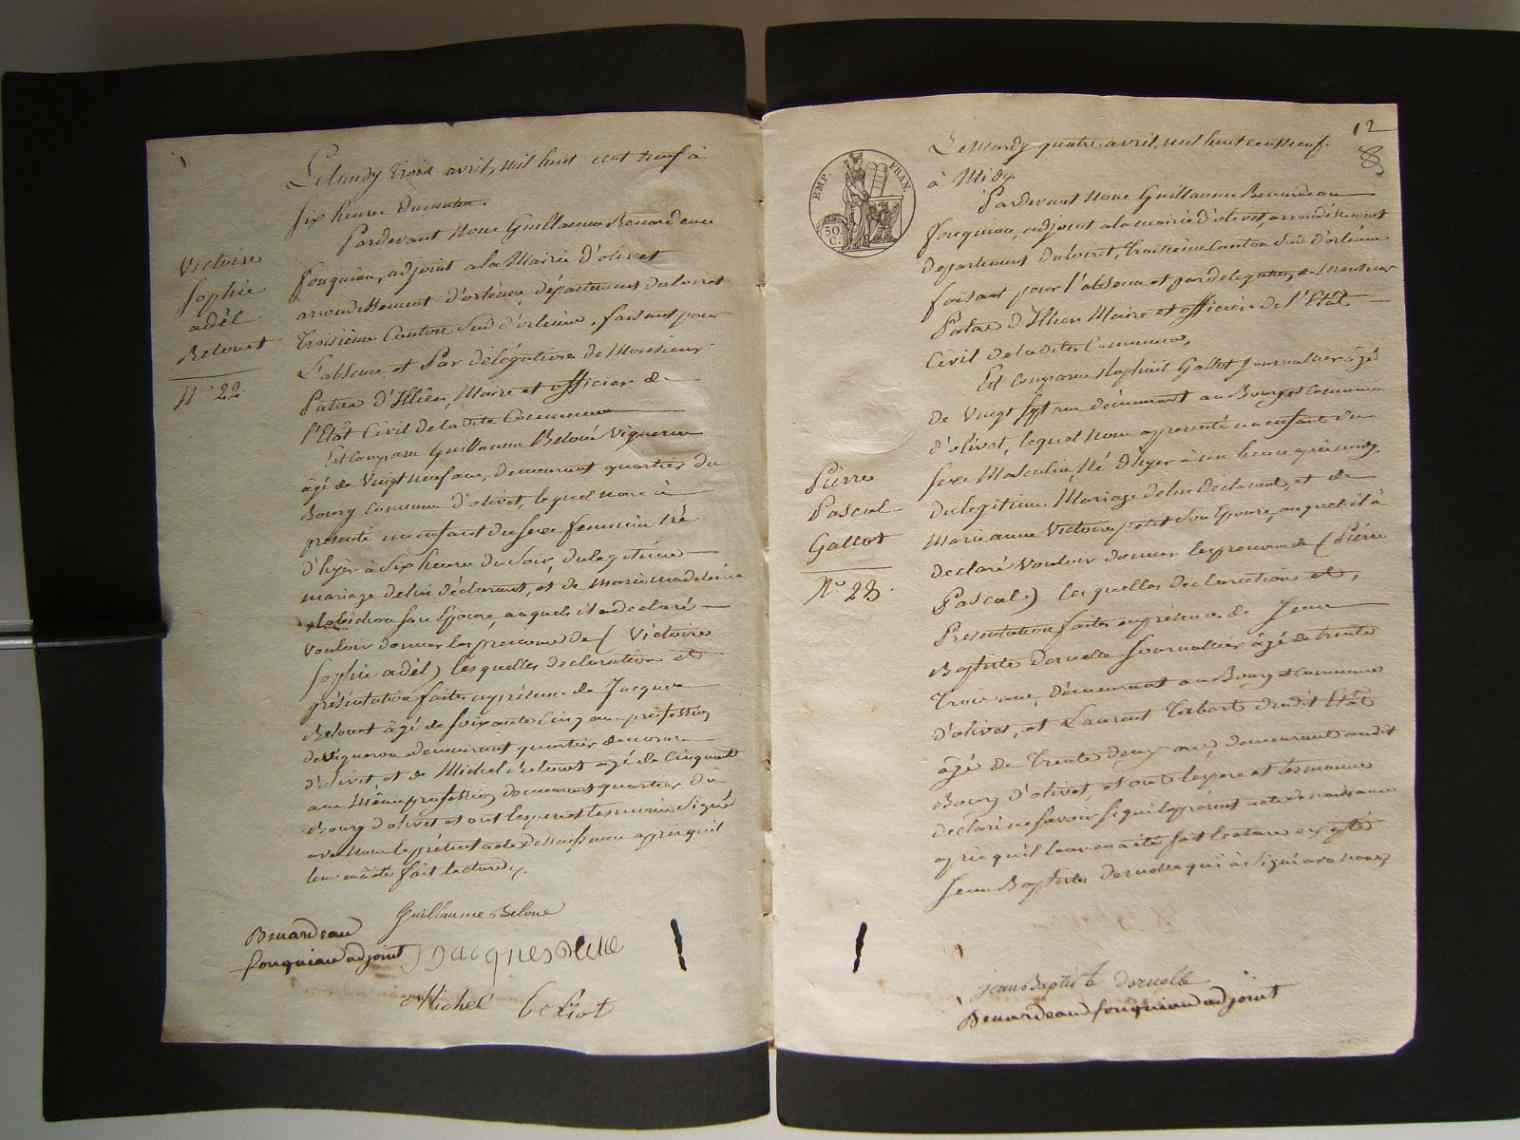 Le lundy trois avril, mil huit cent neuf à
six heures du matin.
Pardevant nous Guillaume Benardeau
fouquiau, adjoint a la Mairie d'olivet
arrondissement d'orléans, département du loiret
troisième Canton Sud d'orléans, faisant pour
L'absence et Par délégation de Monsieur
Patas d'Illiers, Maire et officier de
l'Etât Civil de la dite Commune
Est comparu Guillaume Beloué Vigneron
âgé de Vingt neuf ans, demeurant quartier du
Bourg Commune d'olivet, lequel nous à
présenté un enfant du sexe feminin né
d'hyer à six heures du soir, du legitime
mariage de lui déclarant, et de Marie madeleine
son Epouse, auquel il a declaré
vouloir donner les prenoms de ( Victoire
Sophie adél) lesquelles declaration et
présentation faites en présence de Jacques
Belouet âgé de soixante cinq ans profession
de Vigneron demeurant quartier
d'olivet, et de Michel agé de Cinquante
ans même profession demeurant quartier du
Bourg d'olivet et ont les pere et temoins signé
avec nous le présent acte de naissance après qu'il
leur en a été fait lecture.
Victoire
Sophie
adél
Belouet
N° 22
Guillaume Beloue
Benardeau
fouquiau adjoint
Jacques
Michel
12
EMP. FRAN.
50 C.
Le Mardy quatre avril, mil huit cent neuf.
à Midy
Pardevant nous Guillaume Benardeau
fouquiau, adjoint a la mairie d'olivet, arrondissement
departement du loiret, troisième Canton Sud d'orléans
faisant pour l'absence et par delegation, de Monsieur
Patas d'Illiers Maire et officier de l'Etât
Civil de la dite Commune,
Est Comparu Gallot Journalier âgé
de Vingt sept ans demeurant au Bourg et Commune
d'olivet, lequel nous a presenté un enfant du
sexe Masculin, Né d'hyer à
du legitime Mariage de lui Declarant, et de
Marie anne Victoire petit son Epouse, auquel il à
declaré Vouloir donner les prenoms de ( Pierre
Pascal ) lesquelles declaration et,
Presentation faites en présence de Jean
Baptiste dezuelle Journalier âgé de trente
trois ans, demeurant au Bourg et Commune
d'olivet, et Laurent dudit Etât
âgé de trente deux ans, demeurant au dit
Bourg d'olivet, et ont les pere et temoins
declaré ne savoir signer le présent acte de naissance
après qu'il leur en a été fait lecture excepté
Jean Baptiste dezuelle qui à signé avec nous
Pierre
Pascal
Gallot
N° 23.
jean Baptiste dezuelle
Benardeau fouquiau adjoint